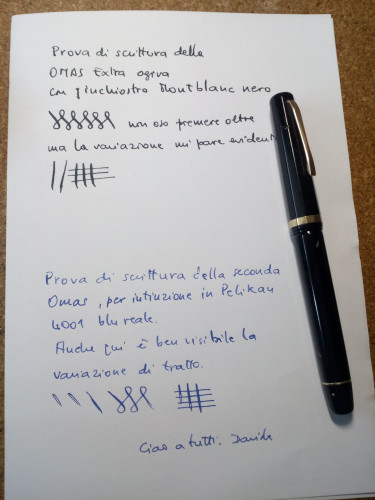 Prova di scrittura della
OMAS Extra ogiva
con l'inchiostro Montblanc nero
non oso premere oltre
ma la variazione mi pare evidente
Prova di scrittura della seconda
Omas, per intinzione in Pelikan
4001 blu reale.
Anche qui è ben visibile la
variazione di tratto.
Ciao a tutti, Davide